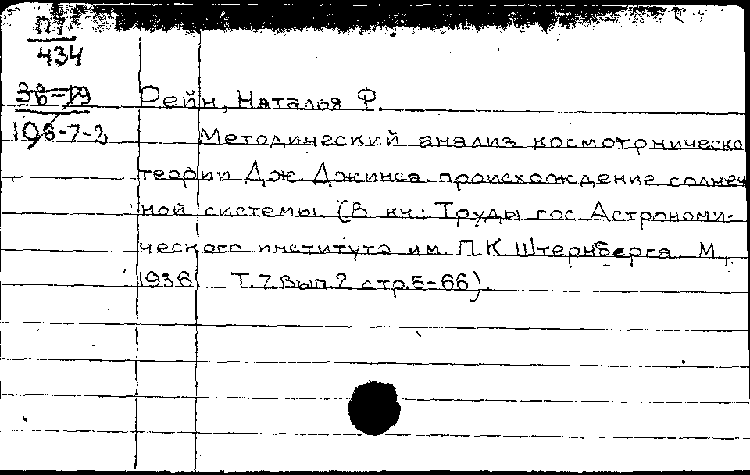 П7
434
38-19
108-7-2
Рейн, Наталья Ф.
Методический анализ космогоническо
теории Дж. Джинса происхождение солнеч
ной системы. (В кн.: Труды гос. Астрономи-
ческого института им. П.К Штернберга. М.,
1936 Т.7 Вып.2 стр.5-66).